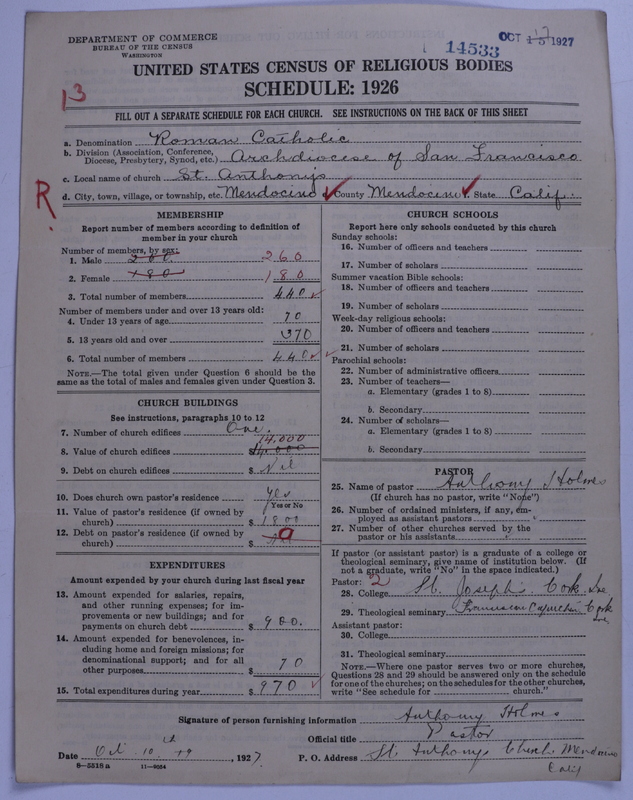 DEPARTMENT OF COMMERCE
BUREAU OF THE CENSUS
WASHINGTON
14533
OCT 1927
UNITED STATES CENSUS OF RELIGIOUS BODIES
SCHEDULE: 1926
13
FILL OUT A SEPARATE SCHEDULE FOR EACH CHURCH. SEE INSTRUCTIONS ON THE BACK OF THIS SHEET
a. Denomination Roman Catholic
b. Division (Association, Conference, Diocese, Presbytery, Synod, etc.) Archdiocese of San Francisco
c. Local name of church St. Anthonys
R. d. City, town, village, or township, etc. Mendocino County Mendocino State Calif.
MEMBERSHIP
Report number of members according to definition of
member in your church
Number of members, by sex:
1. Male 260 260
2. Female 180 180
3. Total number of members 440
Number of members under and over 13 years old:
4. Under 13 years of age 70
5. 13 years old and over 370
6. Total number of members 440
NOTE.—The total given under Question 6 should be the
same as the total of males and females given under Question 3.
CHURCH BUILDINGS
See instructions, paragraphs 10 to 12
7. Number of church edifices One.
14,000
8. Value of church edifices $14,000
9. Debt on church edifices $ Nil
10. Does church own pastor's residence yes
Yes or No
11. Value of pastor's residence (if owned by
church) $ 1800
12. Debt on pastor's residence (if owned by
church) $ 0
EXPENDITURES
Amount expended by your church during last fiscal year
13. Amount expended for salaries, repairs,
and other running expenses; for im-
provements or new buildings; and for
payments on church debt $ 900.
14. Amount expended for benevolences, in-
cluding home and foreign missions; for
denominational support; and for all
other purposes $ 70
15. Total expenditures during year $ 970
CHURCH SCHOOLS
Report here only schools conducted by this church
Sunday schools:
16. Number of officers and teachers
17. Number of scholars
Summer vacation Bible schools:
18. Number of officers and teachers
19. Number of scholars
Week-day religious schools:
20. Number of officers and teachers
21. Number of scholars
Parochial schools:
22. Number of administrative officers
23. Number of teachers—
a. Elementary (grades 1 to 8)
b. Secondary
24. Number of scholars—
a. Elementary (grades 1 to 8)
b. Secondary
PASTOR
25. Name of pastor Anthony Holmes
(If church has no pastor, write "None")
26. Number of ordained ministers, if any, em-
ployed as assistant pastors
27. Number of other churches served by the
pastor or his assistants
If pastor (or assistant pastor) is a graduate of a college or
theological seminary, give name of institution below. (If
not a graduate, write "No" in the space indicated.)
Pastor: 2
28. College St. Josephs Cork Ire
29. Theological seminary Franciscan Capuchin Cork Ire
Assistant pastor:
30. College
31. Theological seminary
NOTE.—Where one pastor serves two or more churches,
Questions 28 and 29 should be answered only on the schedule
for one of the churches; on the schedules for the other churches,
write "See schedule for church."
Signature of person furnishing information Anthony Holmes
Official title Pastor
Date Oct. 10th, 1927 P. O. Address St Anthonys Church Mendocino
Calif
8—5518 a 11—8554